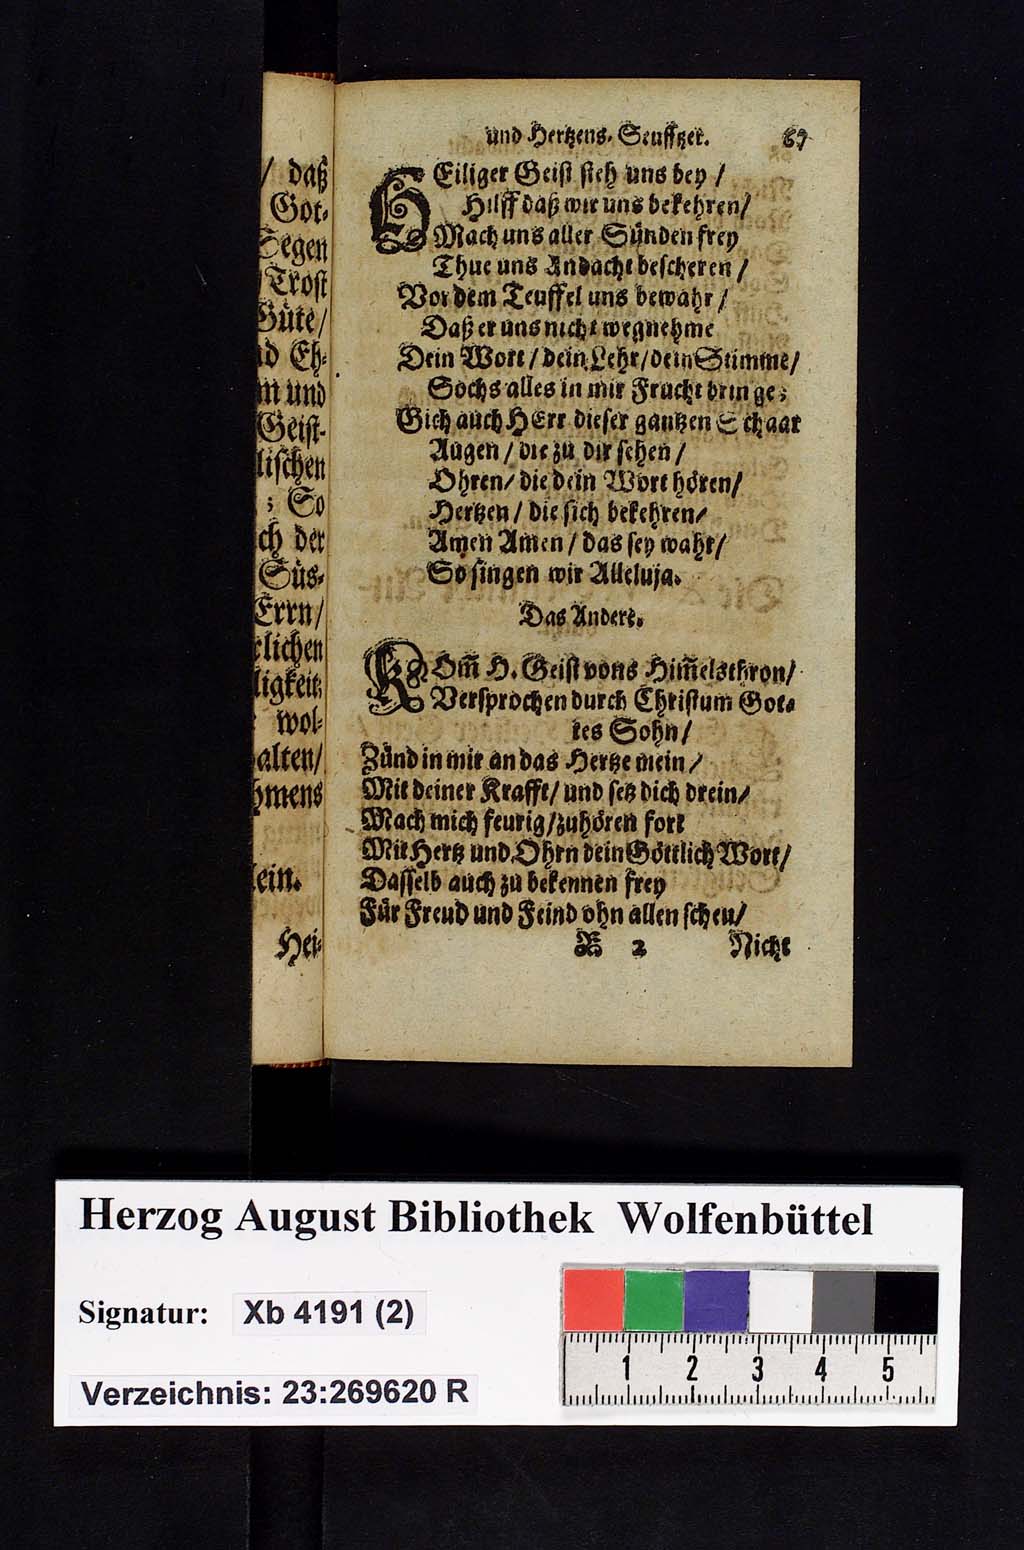 / daß
Got-
Segen
Trost
Güte/
nd Eh-
m und
Geist-
lischen
; So
ch der
Süs-
Errn/
rlichen
ligkeit
wol-
alten/
hmens
lein.
Hei-
und Hertzens-Seufftzer. 69
HEiliger Geist steh uns bey /
Hilff daß wir uns bekehren/
Mach uns aller Sünden frey
Thue uns Andacht bescheren /
Vor dem Teuffel uns bewahr /
Daß er uns nicht wegnehme
Dein Wort / dein Lehr / dein Stimme /
Sochs alles in mir Frucht bringe;
Gieb auch HErr dieser gantzen Schaar
Augen / die zu dir sehen /
Ohren / die dein Wort hören/
Hertzen / die sich bekehren/
Amen Amen / das sey wahr/
So singen wir Alleluja.
Das Andere.
KOm̃ H. Geist vons Him̃elsthron/
Versprochen durch Christum Got-
tes Sohn /
Zünd in mir an das Hertze mein /
Mit deiner Krafft / und setz dich drein/
Mach mich feurig / zuhören fort
Mit Hertz und Ohrn dein Göttlich Wort/
Dasselb auch zu bekennen frey
Für Freud und Feind ohn allen scheu/
R 2 Nicht
Herzog August Bibliothek Wolfenbüttel
Signatur: Xb 4191 (2)
1 2 3 4 5
Verzeichnis: 23:269620 R